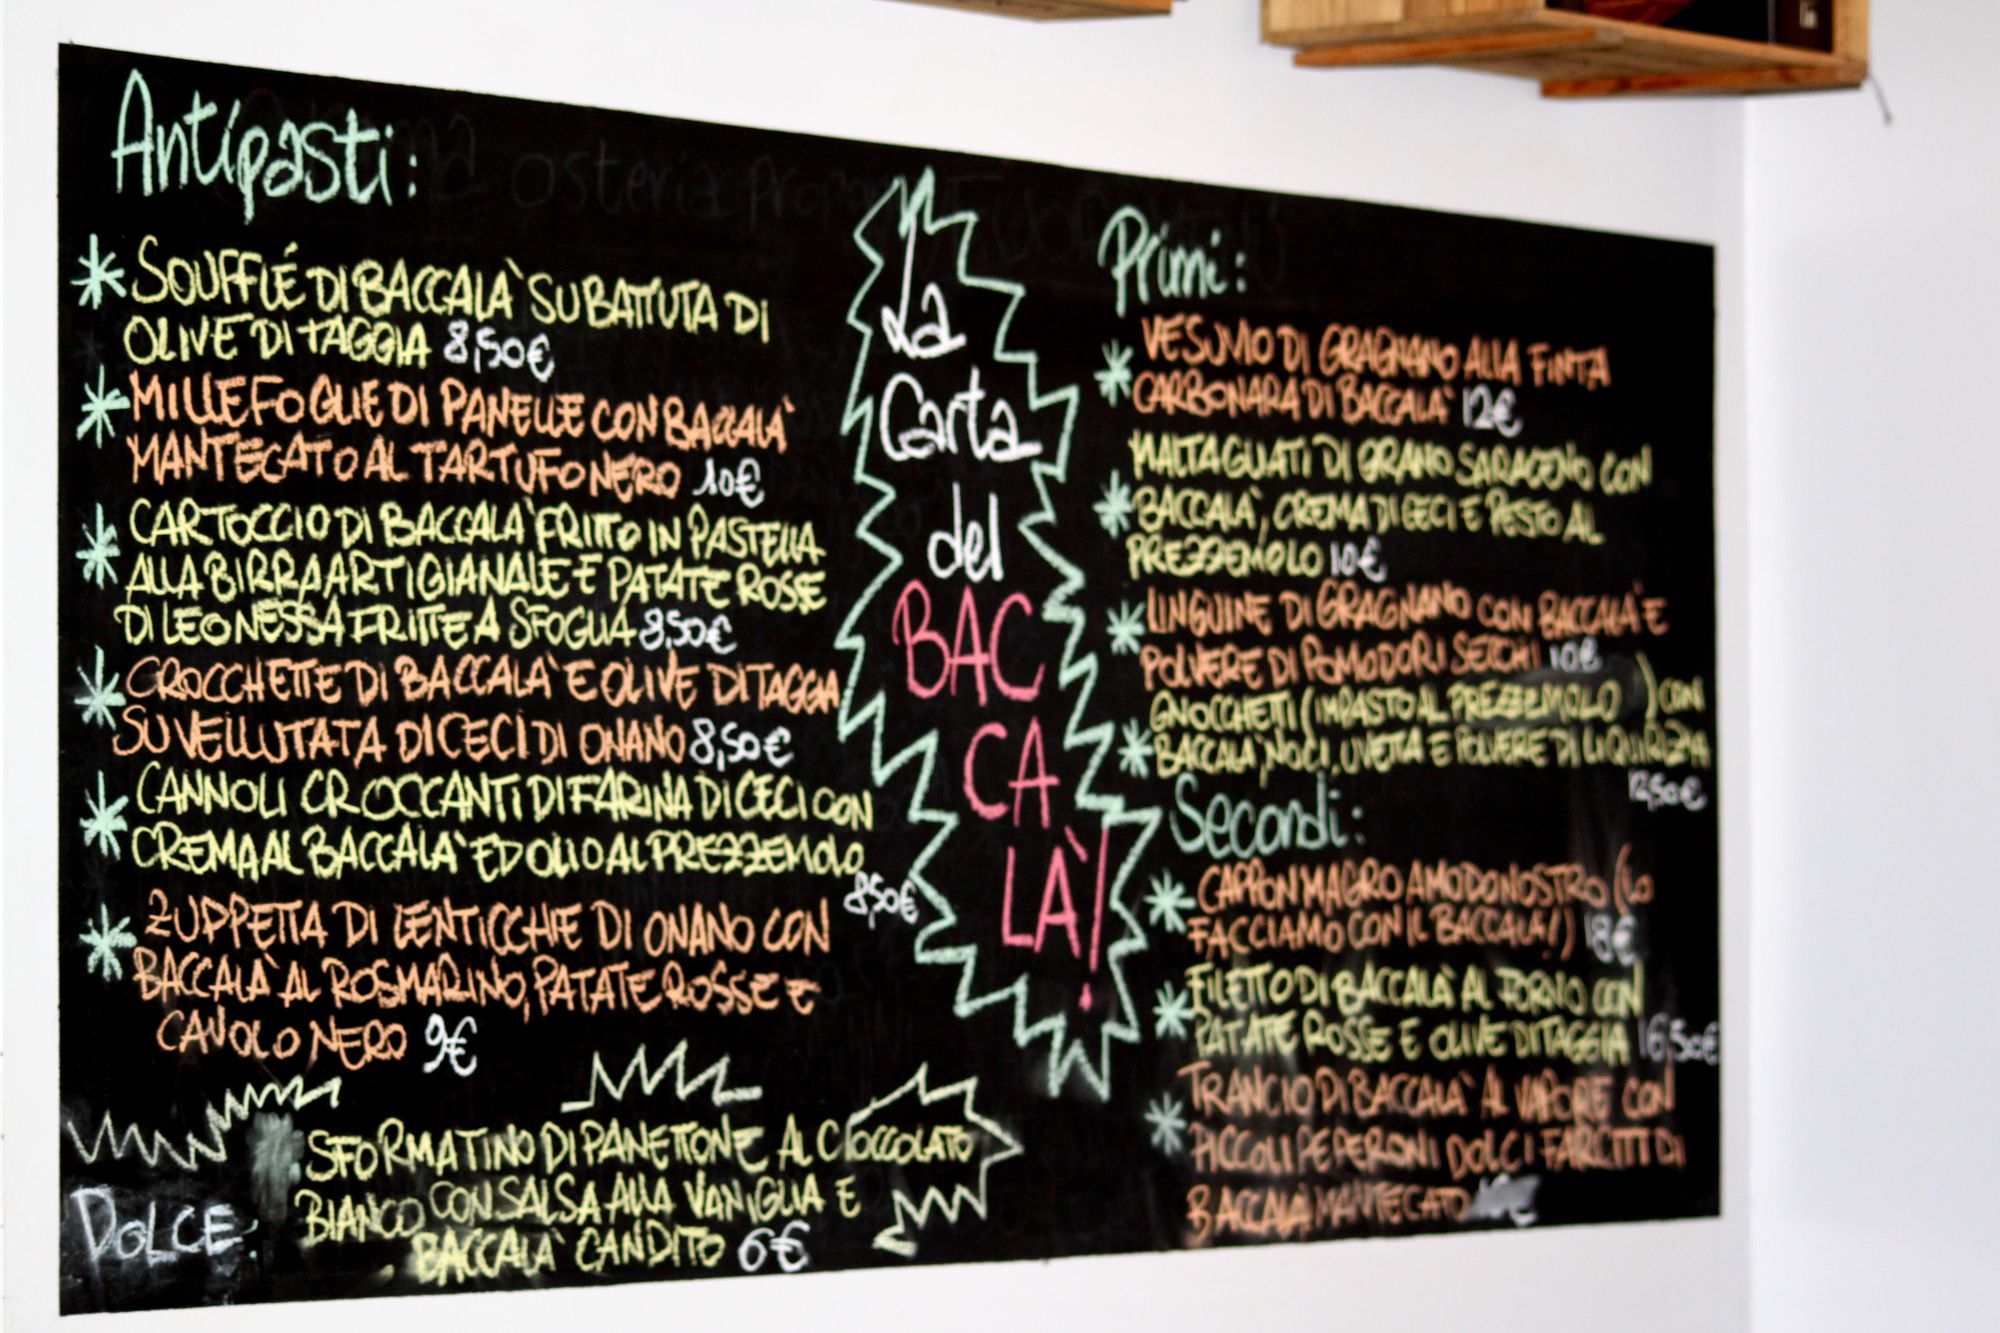 Antipasti:
SOUFFLÉ DI BACCALÀ SU BATTUTA DI
OLIVE DI TAGGIA 8,50€
MILLEFOGLIE DI PANELLE CON BACCALÀ
MANTECATO AL TARTUFO NERO 10€
CARTOCCIO DI BACCALÀ FRITTO IN PASTELLA
ALLA BIRRA ARTIGIANALE E PATATE ROSSE
DI LEONESSA FRITTE A SFOGLIA 8,50€
CROCCHETTE DI BACCALÀ E OLIVE DI TAGGIA
SU VELLUTATA DI CECI DI ONANO 8,50€
CANNOLI CROCCANTI DI FARINA DI CECI CON
CREMA AL BACCALÀ ED OLIO AL PREZZEMOLO
8,50€
ZUPPETTA DI LENTICCHIE DI ONANO CON
BACCALÀ AL ROSMARINO, PATATE ROSSE E
CAVOLO NERO 9€
DOLCE:
SFORMATINO DI PANETTONE AL CIOCCOLATO
BIANCO CON SALSA ALLA VANIGLIA E
BACCALÀ CANDITO 6€
La
Carta
del
BAC
CA
LÀ!
Primi:
VESUVIO DI GRAGNANO ALLA FINTA
CARBONARA DI BACCALÀ 12€
MALTAGLIATI DI GRANO SARACENO CON
BACCALÀ, CREMA DI CECI E PESTO AL
PREZZEMOLO 10€
LINGUINE DI GRAGNANO CON BACCALÀ E
POLVERE DI POMODORI SECCHI 10€
GNOCCHETTI (IMPASTO AL PREZZEMOLO) CON
BACCALÀ, NOCI, UVETTA E POLVERE DI LIQUIRIZIA
12,50€
Secondi:
CAPPON MAGRO A MODO NOSTRO (LO
FACCIAMO CON IL BACCALÀ!) 18€
FILETTO DI BACCALÀ AL FORNO CON
PATATE ROSSE E OLIVE DI TAGGIA 16,50€
TRANCIO DI BACCALÀ AL VAPORE CON
PICCOLI PEPERONI DOLCI FARCITI DI
BACCALÀ MANTECATO